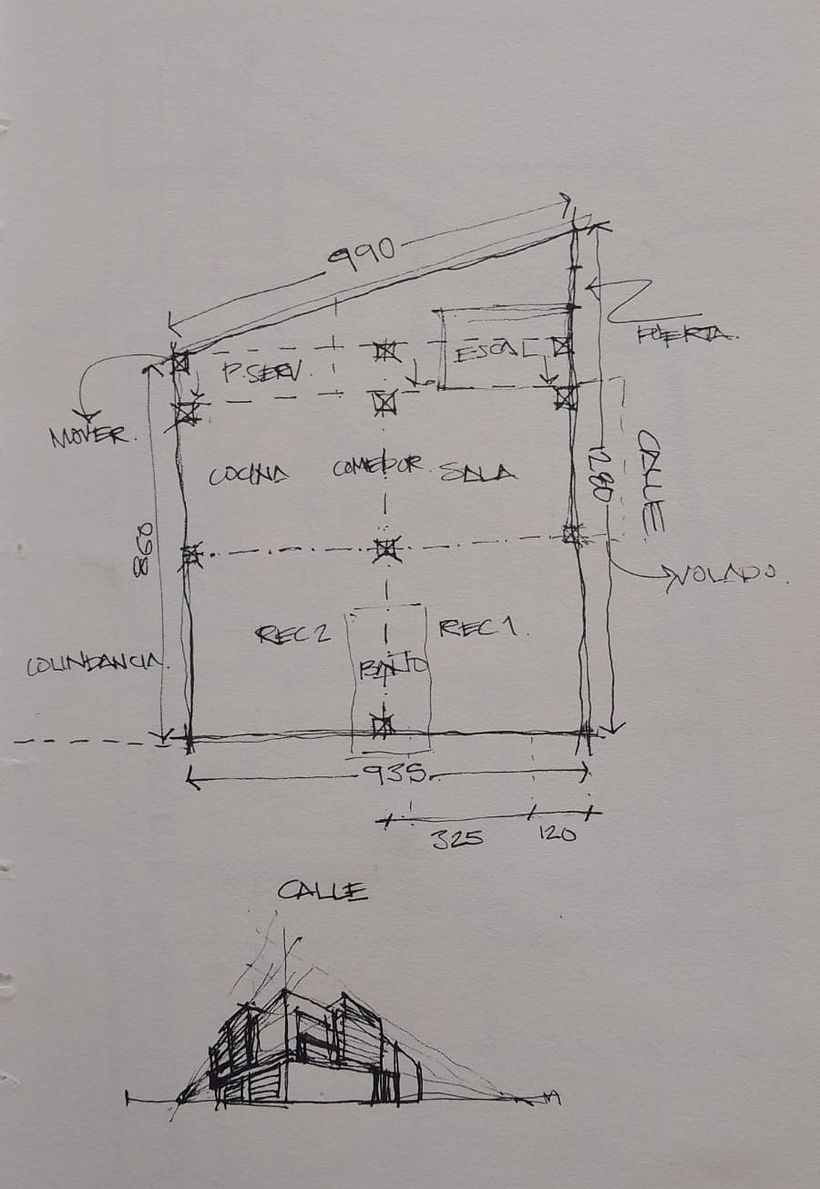 990
PUERTA.
ESCAL
P.SERV.
MOVER.
COCINA
COMEDOR.
SALA
CALLE
1280
860
VOLADO.
REC 2
REC 1.
BAÑO
COLINDANCIA.
935
325
120
CALLE